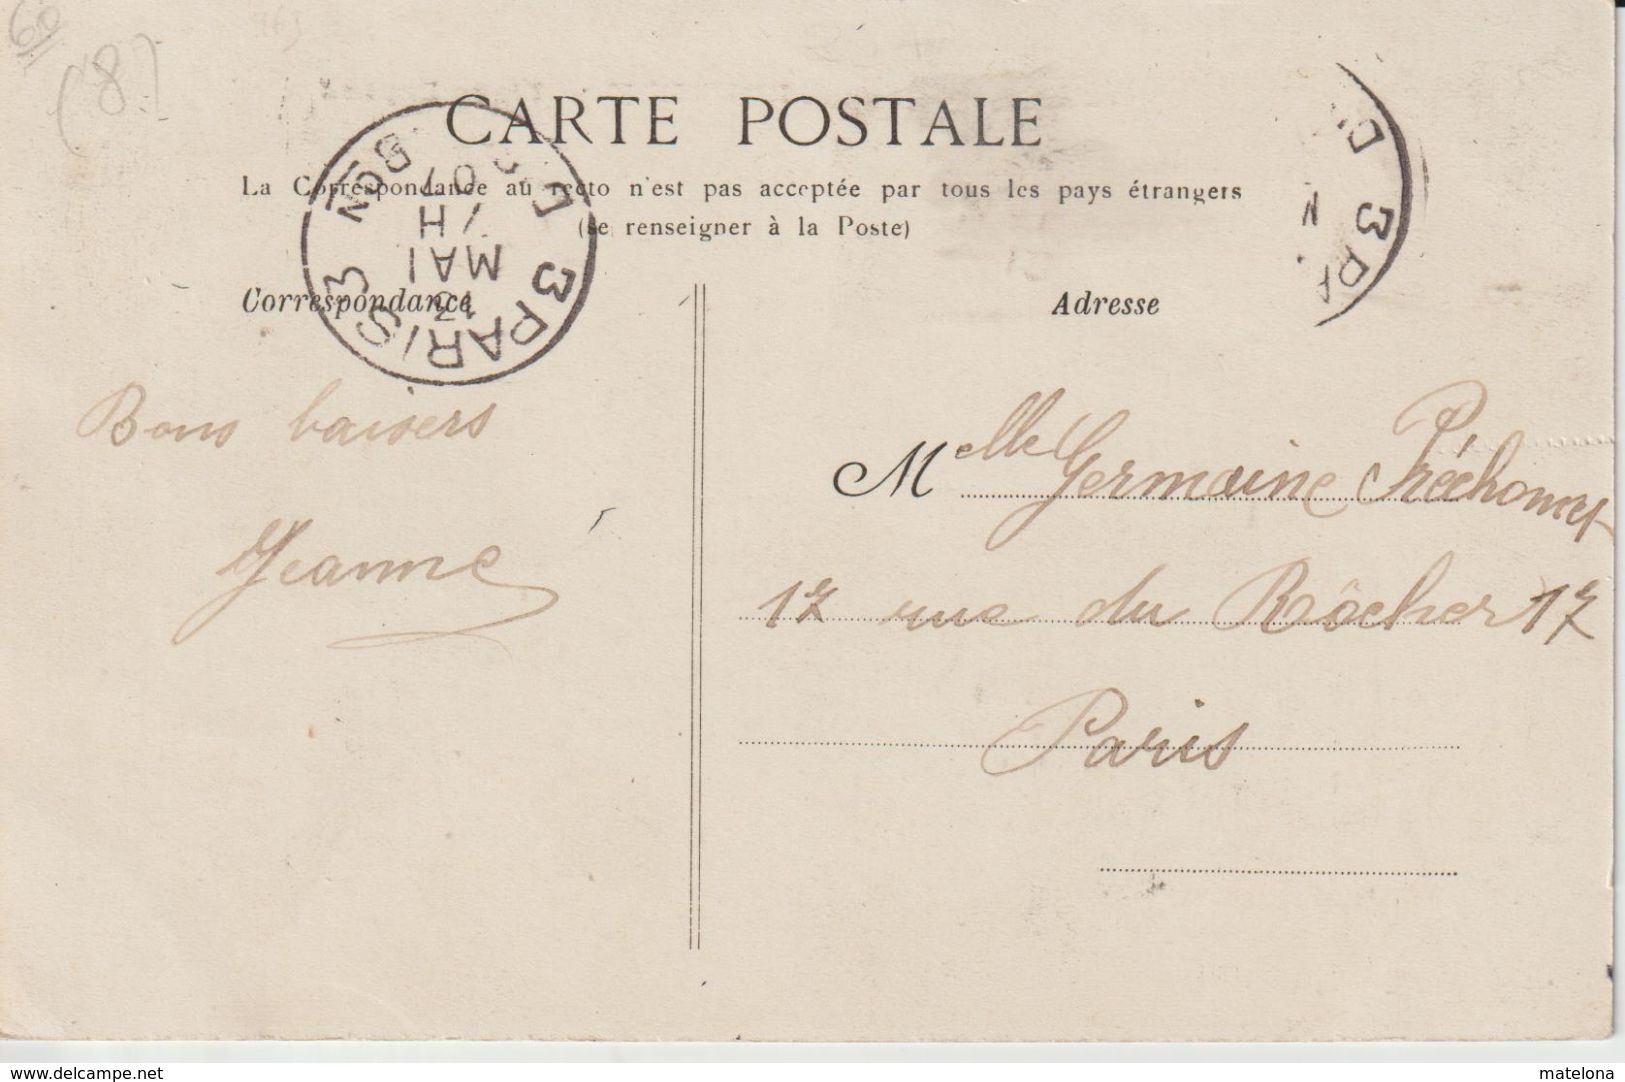 69
(8)
CARTE POSTALE
La Correspondance au recto n'est pas acceptée par tous les pays étrangers
(se renseigner à la Poste)
Correspondance
Adresse
3 PARIS 3
13
MAI
7H
07
3 PA
Bons baisers
Jeanne
Melle Germaine Préchomet
17 rue du Rôcher 17
Paris
www.delcampe.net
matelona